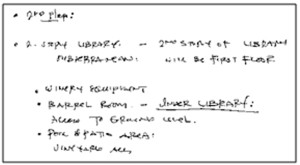 • 2ND FLOOR:
• 2-STORY LIBRARY. — 2ND STORY OF LIBRARY
SUBTERRANEAN: WILL BE FIRST FLOOR
• WINERY EQUIPMENT
• BARREL ROOM. — UNDER LIBRARY:
ACCESS TO GROUND LEVEL.
• POOL & PATIO AREA:
VINEYARD